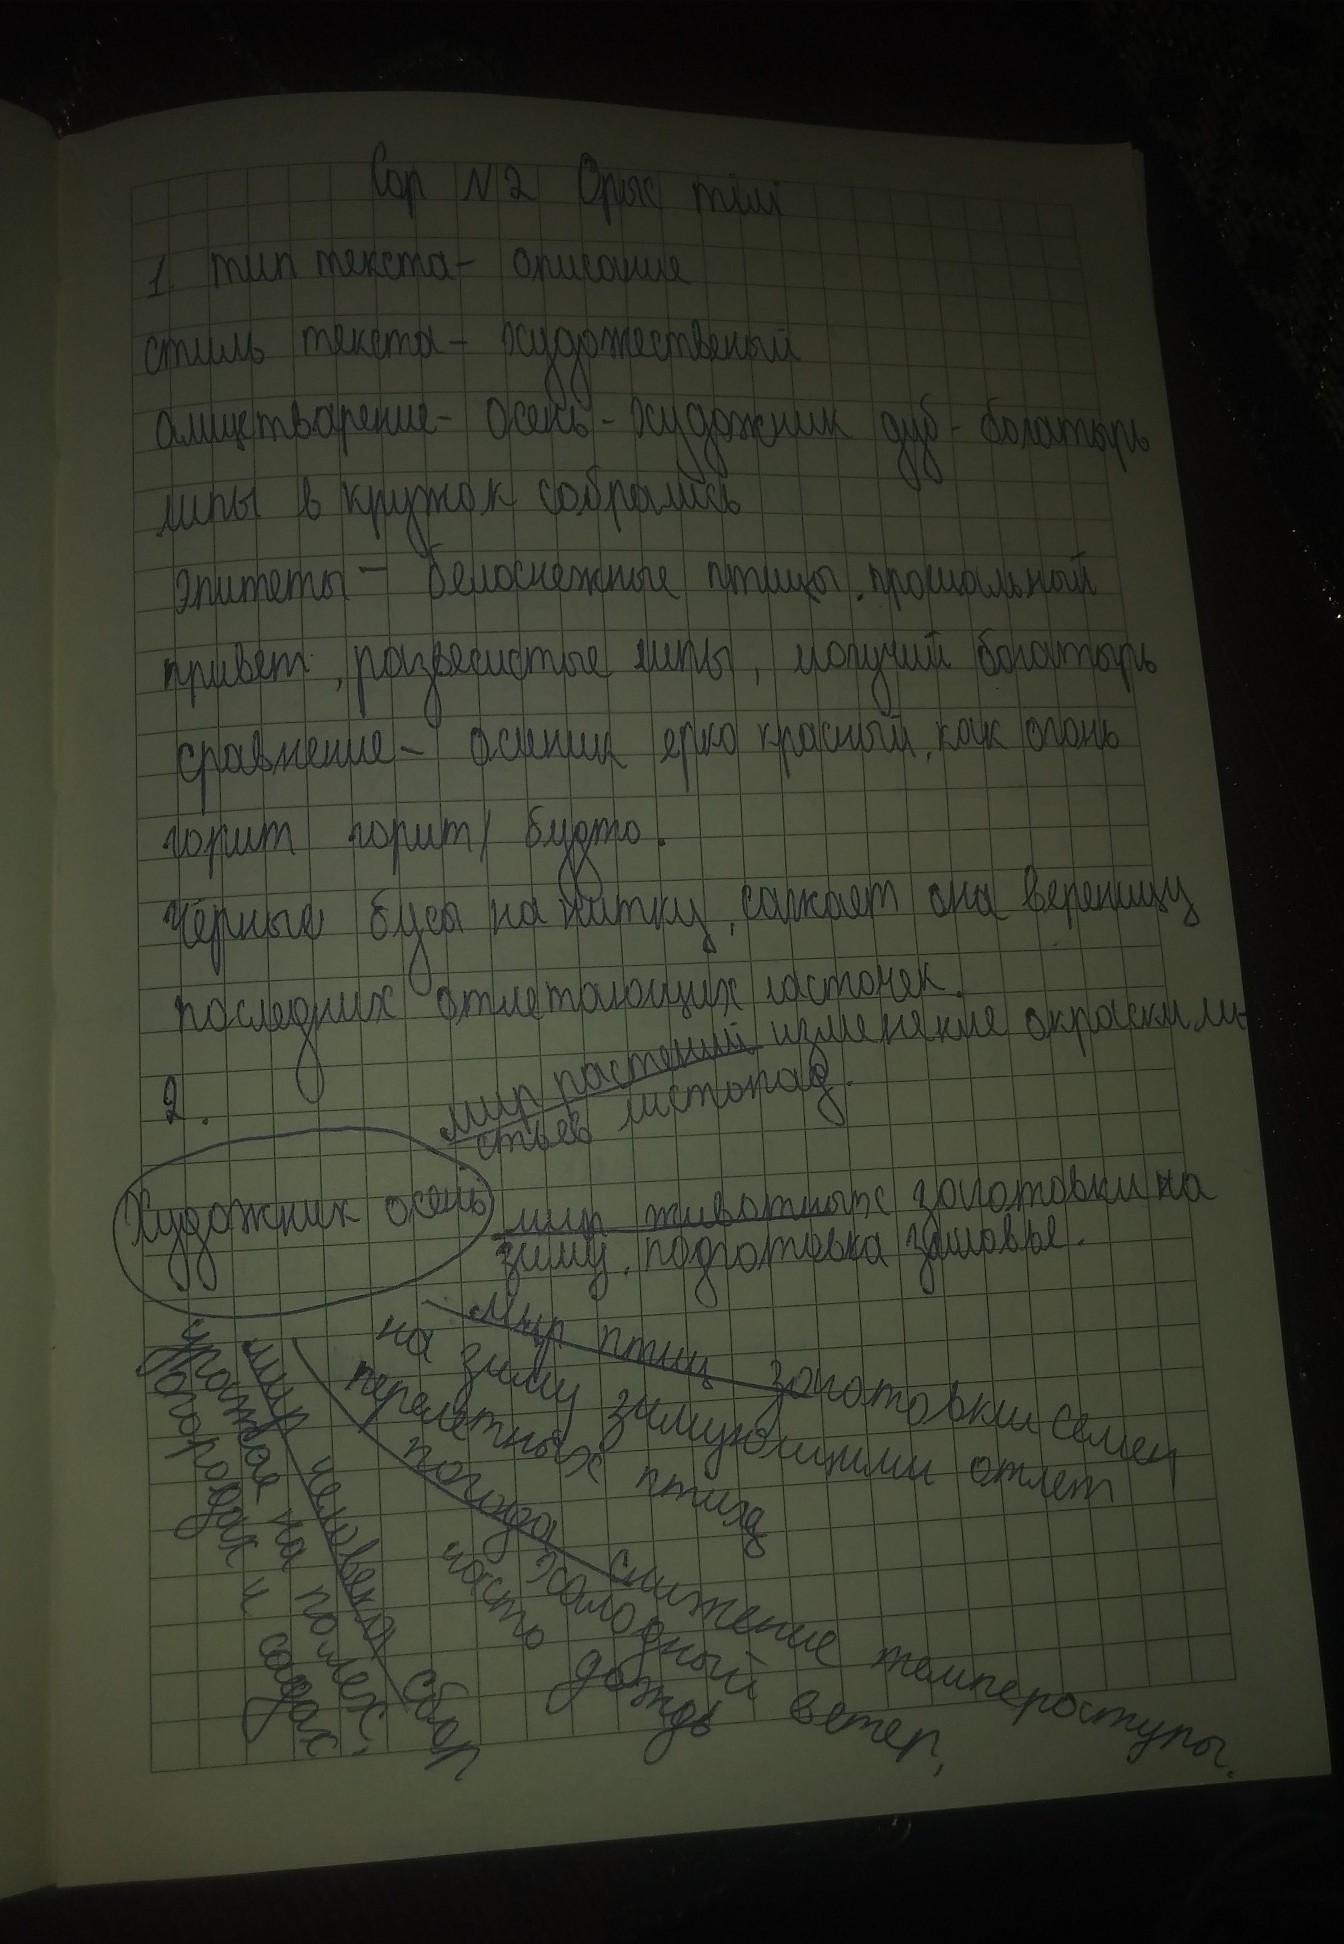 Сор N2 Орыс тілі
1. тип текста - описание
стиль текста - художественый
алицетварение - осень - художник дуб - богатырь
липы в кружок собрались
эпитеты - белоснежные птицы, прощальный
привет, развесистые липы, могучий богатырь
сравнение - осинник ярко красный, как огонь
горит горит / будто.
чёрные бусы на нитку, сажает она вереницу
последних отлетающих ласточек.
2.
мир растений изменение окраски ли-
стьев листопад.
Художник осень
мир животных заготовки на
зиму, подготовка зимовье.
мир птиц заготовки семен
на зиму зимующими отлет
перелетных птиц
погода снижение температуры.
холодный ветер,
часто дождь
мир человека сбор
урожая на полях,
огородах и садах